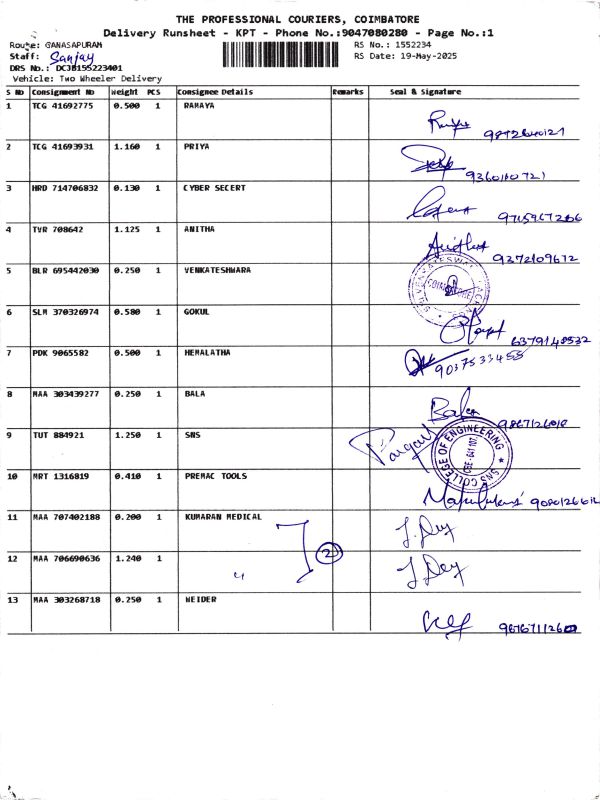 THE PROFESSIONAL COURIERS, COIMBATORE
Delivery Runsheet - KPT - Phone No.:9047080280 - Page No.:1
Route: GANASAPURAM RS No.: 1552234
Staff: Sanjay RS Date: 19-May-2025
DRS No.: DC3B155223401
Vehicle: Two Wheeler Delivery
S No Consignment No Weight PCS Consignee Details Remarks Seal & Signature
1 TCG 41692775 0.500 1 RAMAYA
2 TCG 41693931 1.160 1 PRIYA
3 HRD 714706832 0.130 1 CYBER SECERT
4 TVR 708642 1.125 1 ANITHA
9372109672
5 BLR 695442030 0.250 1 VENKATESHWARA
COIMBATORE
6 SLM 370326974 0.580 1 GOKUL
6379148532
7 PDK 9065582 0.500 1 HEMALATHA
9037533455
8 MAA 303439277 0.250 1 BALA
Bala
9 TUT 884921 1.250 1 SNS
SNS COLLEGE OF ENGINEERING
CBE-641 107
10 MRT 1316819 0.410 1 PREMAC TOOLS
11 MAA 707402188 0.200 1 KUMARAN MEDICAL
J. Dey
2
12 MAA 706690636 1.240 1 "
J. Dey
13 MAA 303268718 0.250 1 WEIDER